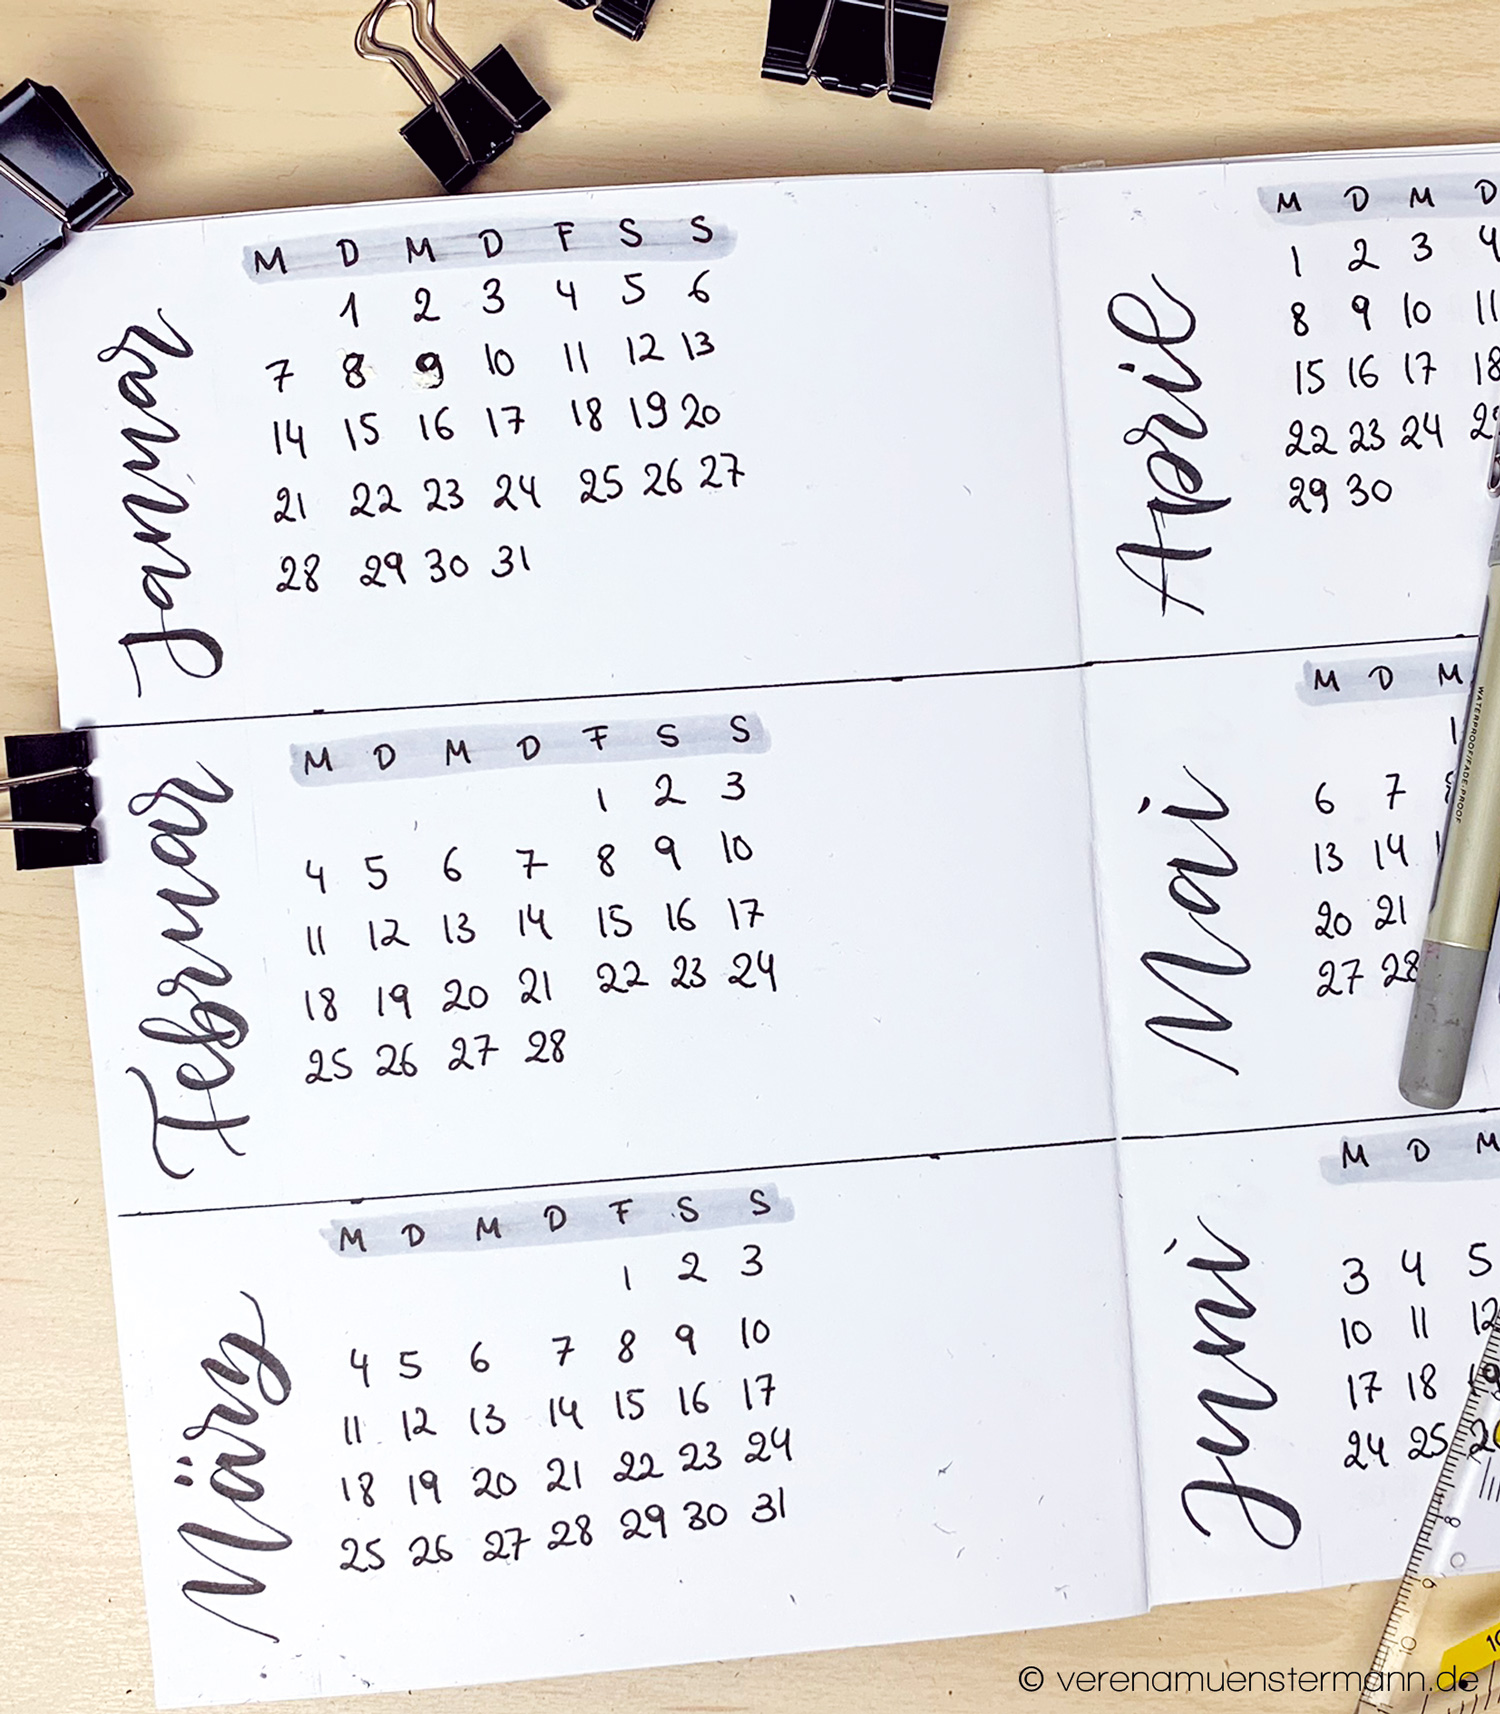 Januar
M D M D F S S
1 2 3 4 5 6
7 8 9 10 11 12 13
14 15 16 17 18 19 20
21 22 23 24 25 26 27
28 29 30 31
Februar
M D M D F S S
1 2 3
4 5 6 7 8 9 10
11 12 13 14 15 16 17
18 19 20 21 22 23 24
25 26 27 28
März
M D M D F S S
1 2 3
4 5 6 7 8 9 10
11 12 13 14 15 16 17
18 19 20 21 22 23 24
25 26 27 28 29 30 31
April
M D M D
1 2 3 4
8 9 10 11
15 16 17 18
22 23 24
29 30
Mai
M D M
1
6 7
13 14
20 21
27 28
Juni
M D M
3 4 5
10 11 12
17 18 19
24 25
WATERPROOF/FADE PROOF
8
9
10
10
© verenamuenstermann.de